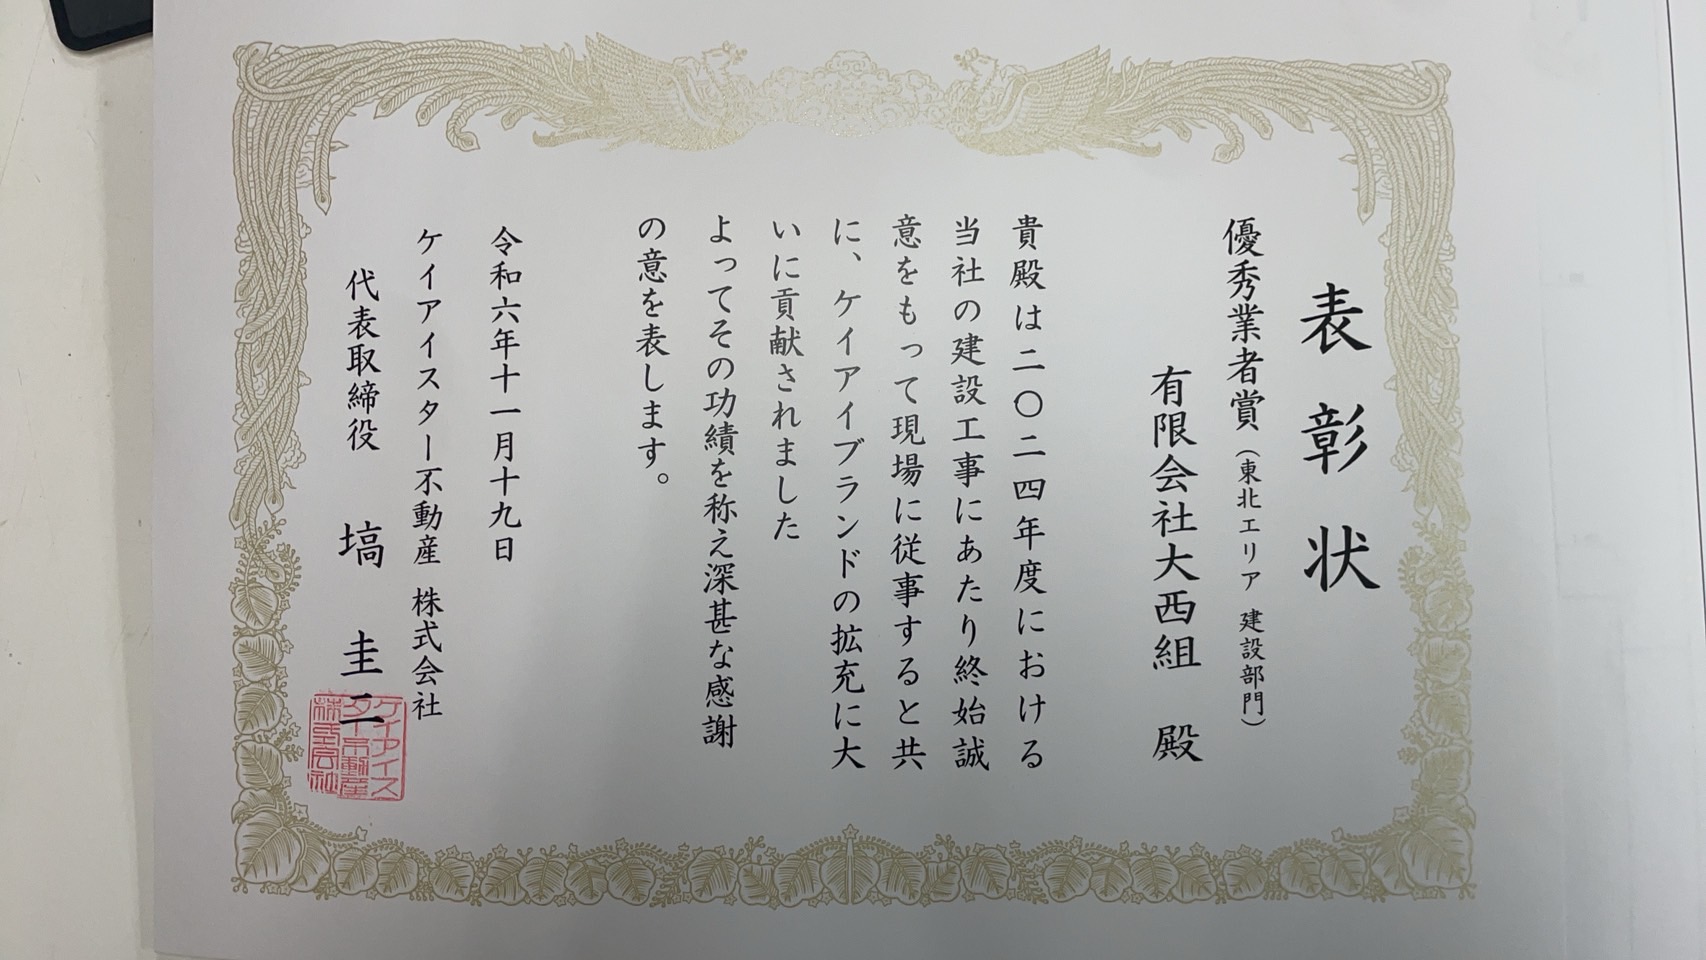 表彰状
優秀業者賞（東北エリア 建設部門）
有限会社大西組 殿
貴殿は二〇二四年度における
当社の建設工事にあたり終始誠
意をもって現場に従事すると共
に、ケイアイブランドの拡充に大
いに貢献されました
よってその功績を称え深甚な感謝
の意を表します。
令和六年十一月十九日
ケイアイスター不動産 株式会社
代表取締役 塙 圭二
ケイアイス
ター不動産
株式会社